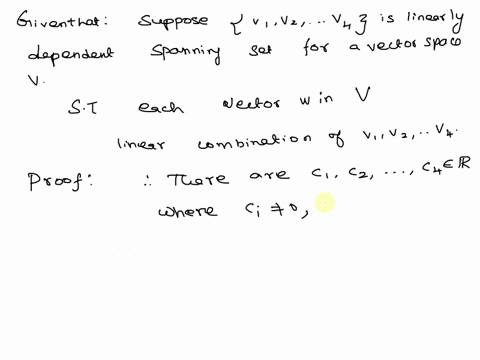 Given that: Suppose {v1, v2, ... v4} is linearly
dependent spanning set for a vector space
V.
S.T each vector w in V
linear combination of v1, v2, .. v4.
Proof: ∴ There are c1, c2, ..., c4 ∈ ℝ
where ci ≠ 0,